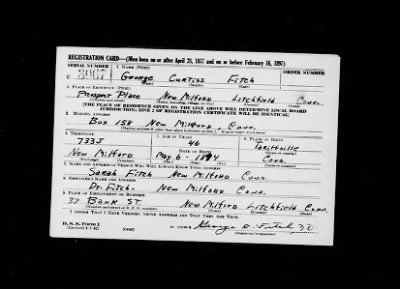 REGISTRATION CARD—(Men born on or after April 28, 1877 and on or before February 16, 1897)
SERIAL NUMBER 1. NAME (Print) ORDER NUMBER
U George Curtiss Fitch
2. PLACE OF RESIDENCE (Print)
Prospect Place New Milford Litchfield Conn.
[THE PLACE OF RESIDENCE GIVEN ON THE LINE ABOVE WILL DETERMINE LOCAL BOARD
JURISDICTION; LINE 2 OF REGISTRATION CERTIFICATE WILL BE IDENTICAL]
3. MAILING ADDRESS
Box 158 New Milford, Conn.
4. TELEPHONE 5. AGE IN YEARS 6. PLACE OF BIRTH
733J 46
DATE OF BIRTH
New Milford May 6 - Conn.
7. NAME AND ADDRESS OF PERSON WHO WILL ALWAYS KNOW YOUR ADDRESS
Sarah Fitch New Milford Conn
8. EMPLOYER'S NAME AND ADDRESS
Dr. Fitch - New Milford Conn.
9. PLACE OF EMPLOYMENT OR BUSINESS
BANK ST. New Milford Litchfield Conn.
I AFFIRM THAT I HAVE VERIFIED ABOVE ANSWERS AND THAT THEY ARE TRUE.
D. S. S. Form 1
(Revised 4-1-42) (over) George C. Fitch